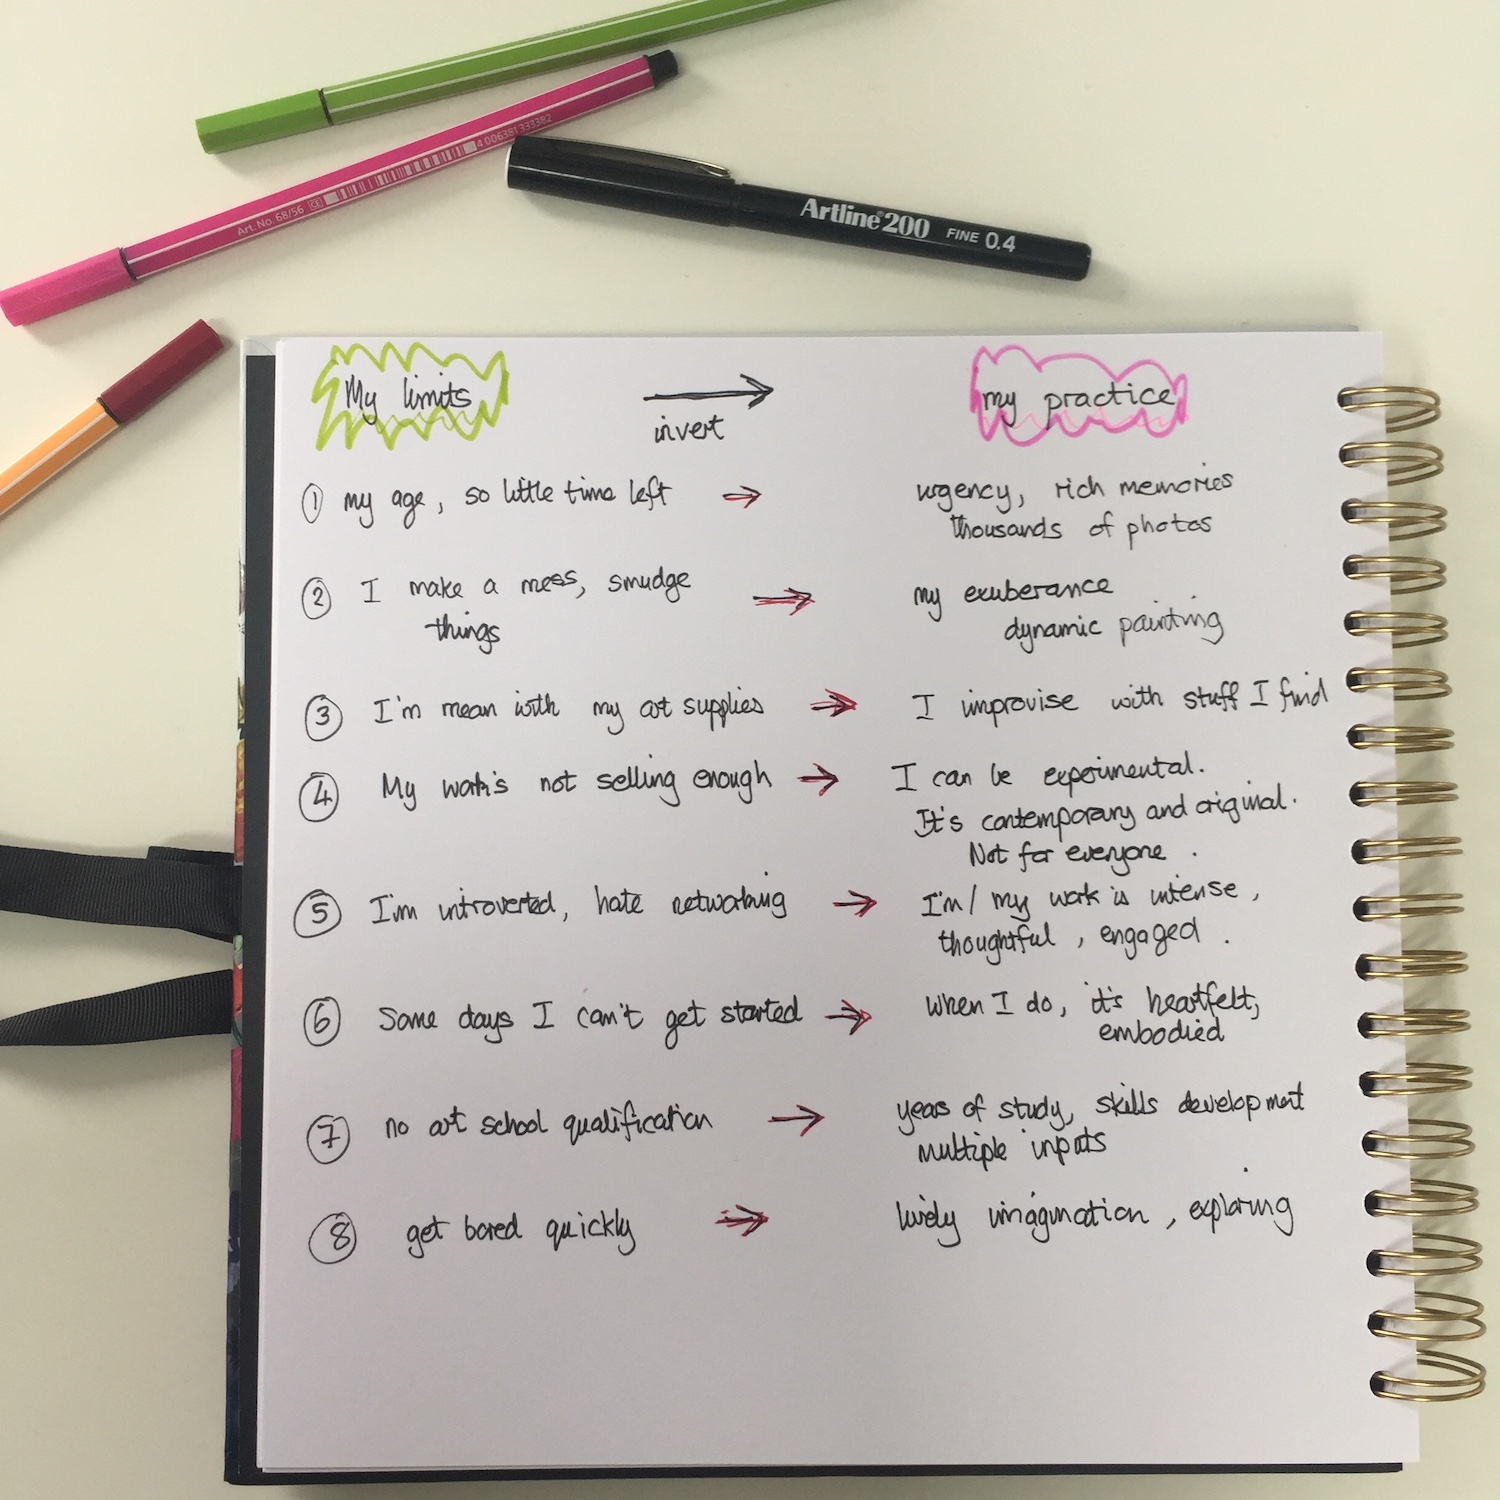 4 006381 333382
Art. No. 68/56 CE
Artline 200 FINE 0.4
My limits
invert
my practice
1 my age, so little time left → urgency, rich memories
thousands of photos
2 I make a mess, smudge → my exuberance
things dynamic painting
3 I'm mean with my art supplies → I improvise with stuff I find
4 My work's not selling enough → I can be experimental.
It's contemporary and original.
Not for everyone.
5 I'm introverted, hate networking → I'm/my work is intense,
thoughtful, engaged.
6 Some days I can't get started → when I do, it's heartfelt,
embodied
7 no art school qualification → years of study, skills development
multiple inputs
8 get bored quickly → lively imagination, exploring